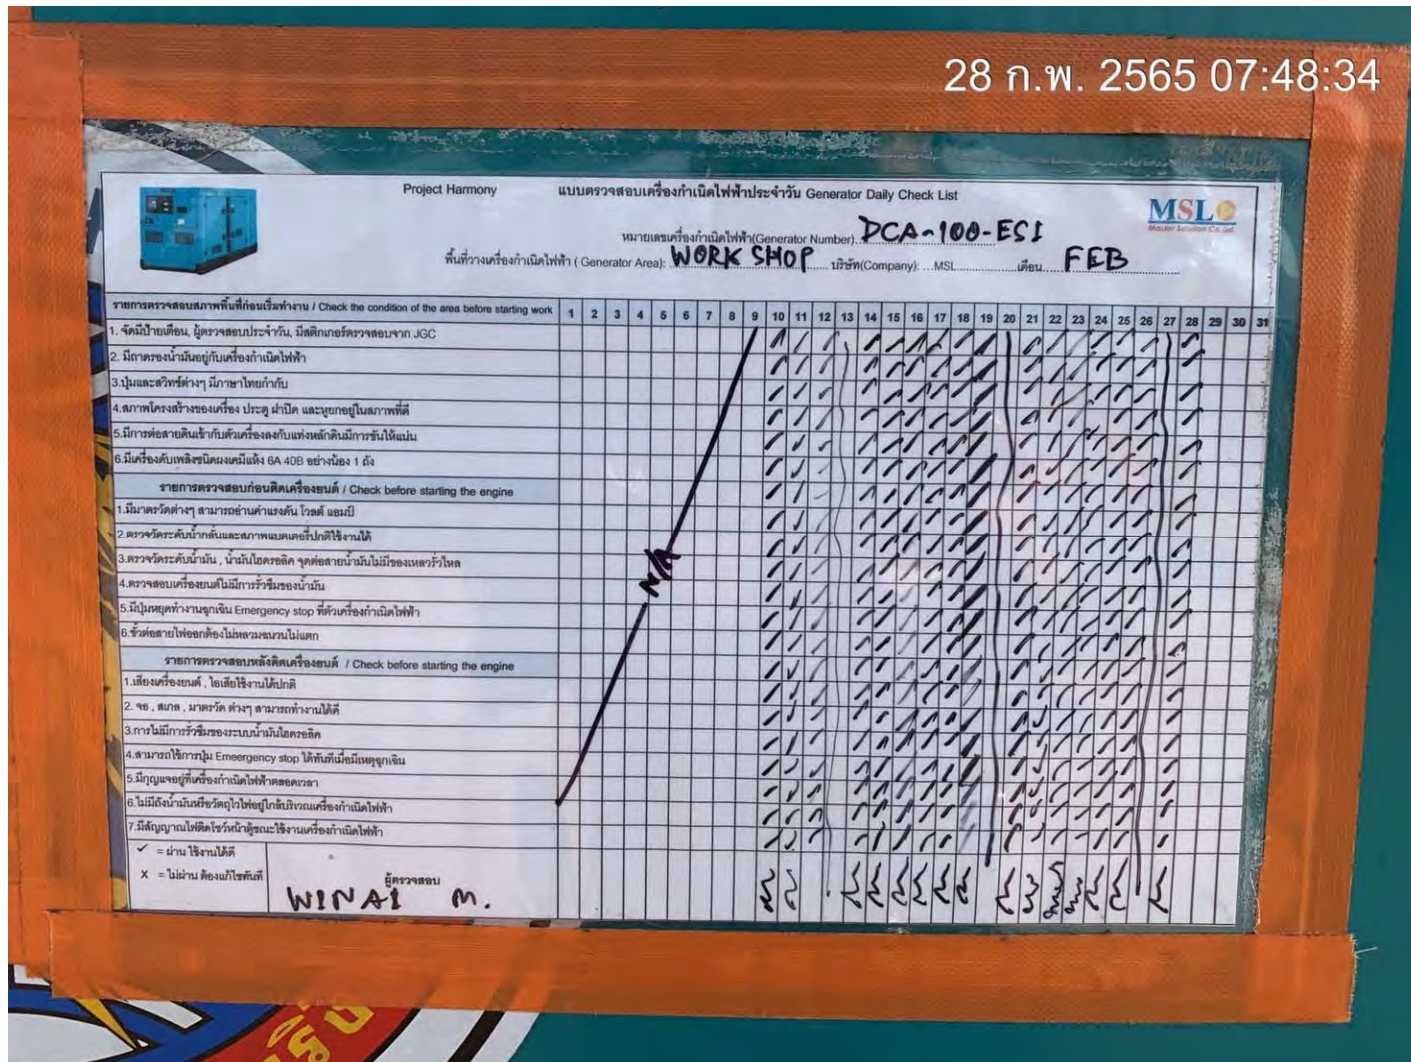 28 ก.พ. 2565 07:48:34
Project Harmony แบบตรวจสอบเครื่องกำเนิดไฟฟ้าประจำวัน Generator Daily Check List
MSL
Master Solution Co.,Ltd.
หมายเลขเครื่องกำเนิดไฟฟ้า(Generator Number). DCA-100-ESI
พื้นที่วางเครื่องกำเนิดไฟฟ้า ( Generator Area): WORK SHOP บริษัท(Company): ...MSL........ เดือน FEB
รายการตรวจสอบสภาพพื้นที่ก่อนเริ่มทำงาน / Check the condition of the area before starting work 1 2 3 4 5 6 7 8 9 10 11 12 13 14 15 16 17 18 19 20 21 22 23 24 25 26 27 28 29 30 31
1. จัดมีป้ายเตือน, ผู้ตรวจสอบประจำวัน, มีสติกเกอร์ตรวจสอบจาก JGC
2. มีถาดรองน้ำมันอยู่กับเครื่องกำเนิดไฟฟ้า
3.ปุ่มและสวิทช์ต่างๆ มีภาษาไทยกำกับ
4.สภาพโครงสร้างของเครื่อง ประตู ฝาปิด และหูยกอยู่ในสภาพที่ดี
5.มีการต่อสายดินเข้ากับตัวเครื่องลงกับแท่งหลักดินมีการขันให้แน่น
6.มีเครื่องดับเพลิงชนิดผงเคมีแห้ง 6A 40B อย่างน้อง 1 ถัง
รายการตรวจสอบก่อนติดเครื่องยนต์ / Check before starting the engine
1.มีมาตรวัดต่างๆ สามารถอ่านค่าแรงดัน โวลต์ แอมป์
2.ตรวจวัดระดับน้ำกลั่นและสภาพแบตเตอรี่ปกติใช้งานได้
3.ตรวจวัดระดับน้ำมัน , น้ำมันไฮดรอลิค จุดต่อสายน้ำมันไม่มีของเหลวรั่วไหล
N/A
4.ตรวจสอบเครื่องยนต์ไม่มีการรั่วซึมของน้ำมัน
5.มีปุ่มหยุดทำงานฉุกเฉิน Emergency stop ที่ตัวเครื่องกำเนิดไฟฟ้า
6.ขั้วต่อสายไฟออกต้องไม่หลวมฉนวนไม่แตก
รายการตรวจสอบหลังติดเครื่องยนต์ / Check before starting the engine
1.เสียงเครื่องยนต์ , ไอเสียใช้งานได้ปกติ
2. จอ , สเกล , มาตรวัด ต่างๆ สามารถทำงานได้ดี
3.การไม่มีการรั่วซึมของระบบน้ำมันไฮดรอลิค
4.สามารถใช้การปุ่ม Emeergency stop ได้ทันทีเมื่อมีเหตุฉุกเฉิน
5.มีกุญแจอยู่ที่เครื่องกำเนิดไฟฟ้าตลอดเวลา
6.ไม่มีถังน้ำมันหรือวัตถุไวไฟอยู่ใกล้บริเวณเครื่องกำเนิดไฟฟ้า
7.มีสัญญาณไฟติดโชว์หน้าตู้ขณะใช้งานเครื่องกำเนิดไฟฟ้า
✓ = ผ่าน ใช้งานได้ดี
X = ไม่ผ่าน ต้องแก้ไขทันที
ผู้ตรวจสอบ
WINAI M.